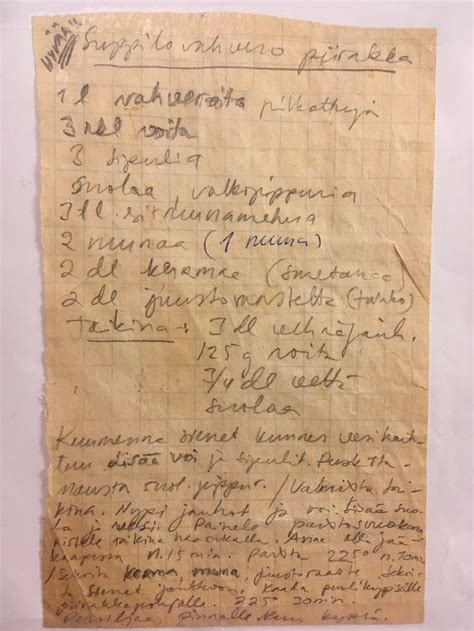 "HYVÄ"
Suppilovahvero piirakka
1 l vahveroita pilkottuja
3 rkl voita
3 sipulia
suolaa valkopippuria
3 tl sitruunamehua
2 munaa (1 muna)
2 dl kermaa (smetanaa)
2 dl juustoraastetta (
Taikina: 3 dl vehnäjauh.
125 g voita
3/4 dl vettä
suolaa
Kuumenna sienet kunnes vesi haih-
tuu lisää voi ja sipulit.
mausta suol. pippur. / Valmista tai-
kina. Nypi jauhot ja voi. Lisää suo-
la ja vesi. Painele
pistele taikina haarukalla. Anna olla jää-
kaapissa n. 15 min. Paista 225° n. 10 min
/ Sekoita kerma muna, juustoraaste
sienet joukkoon. Kaada puolikypsälle
piirakkapohjalle. 225° 30 min.
Persiljaa pinnalle kun kypsä.